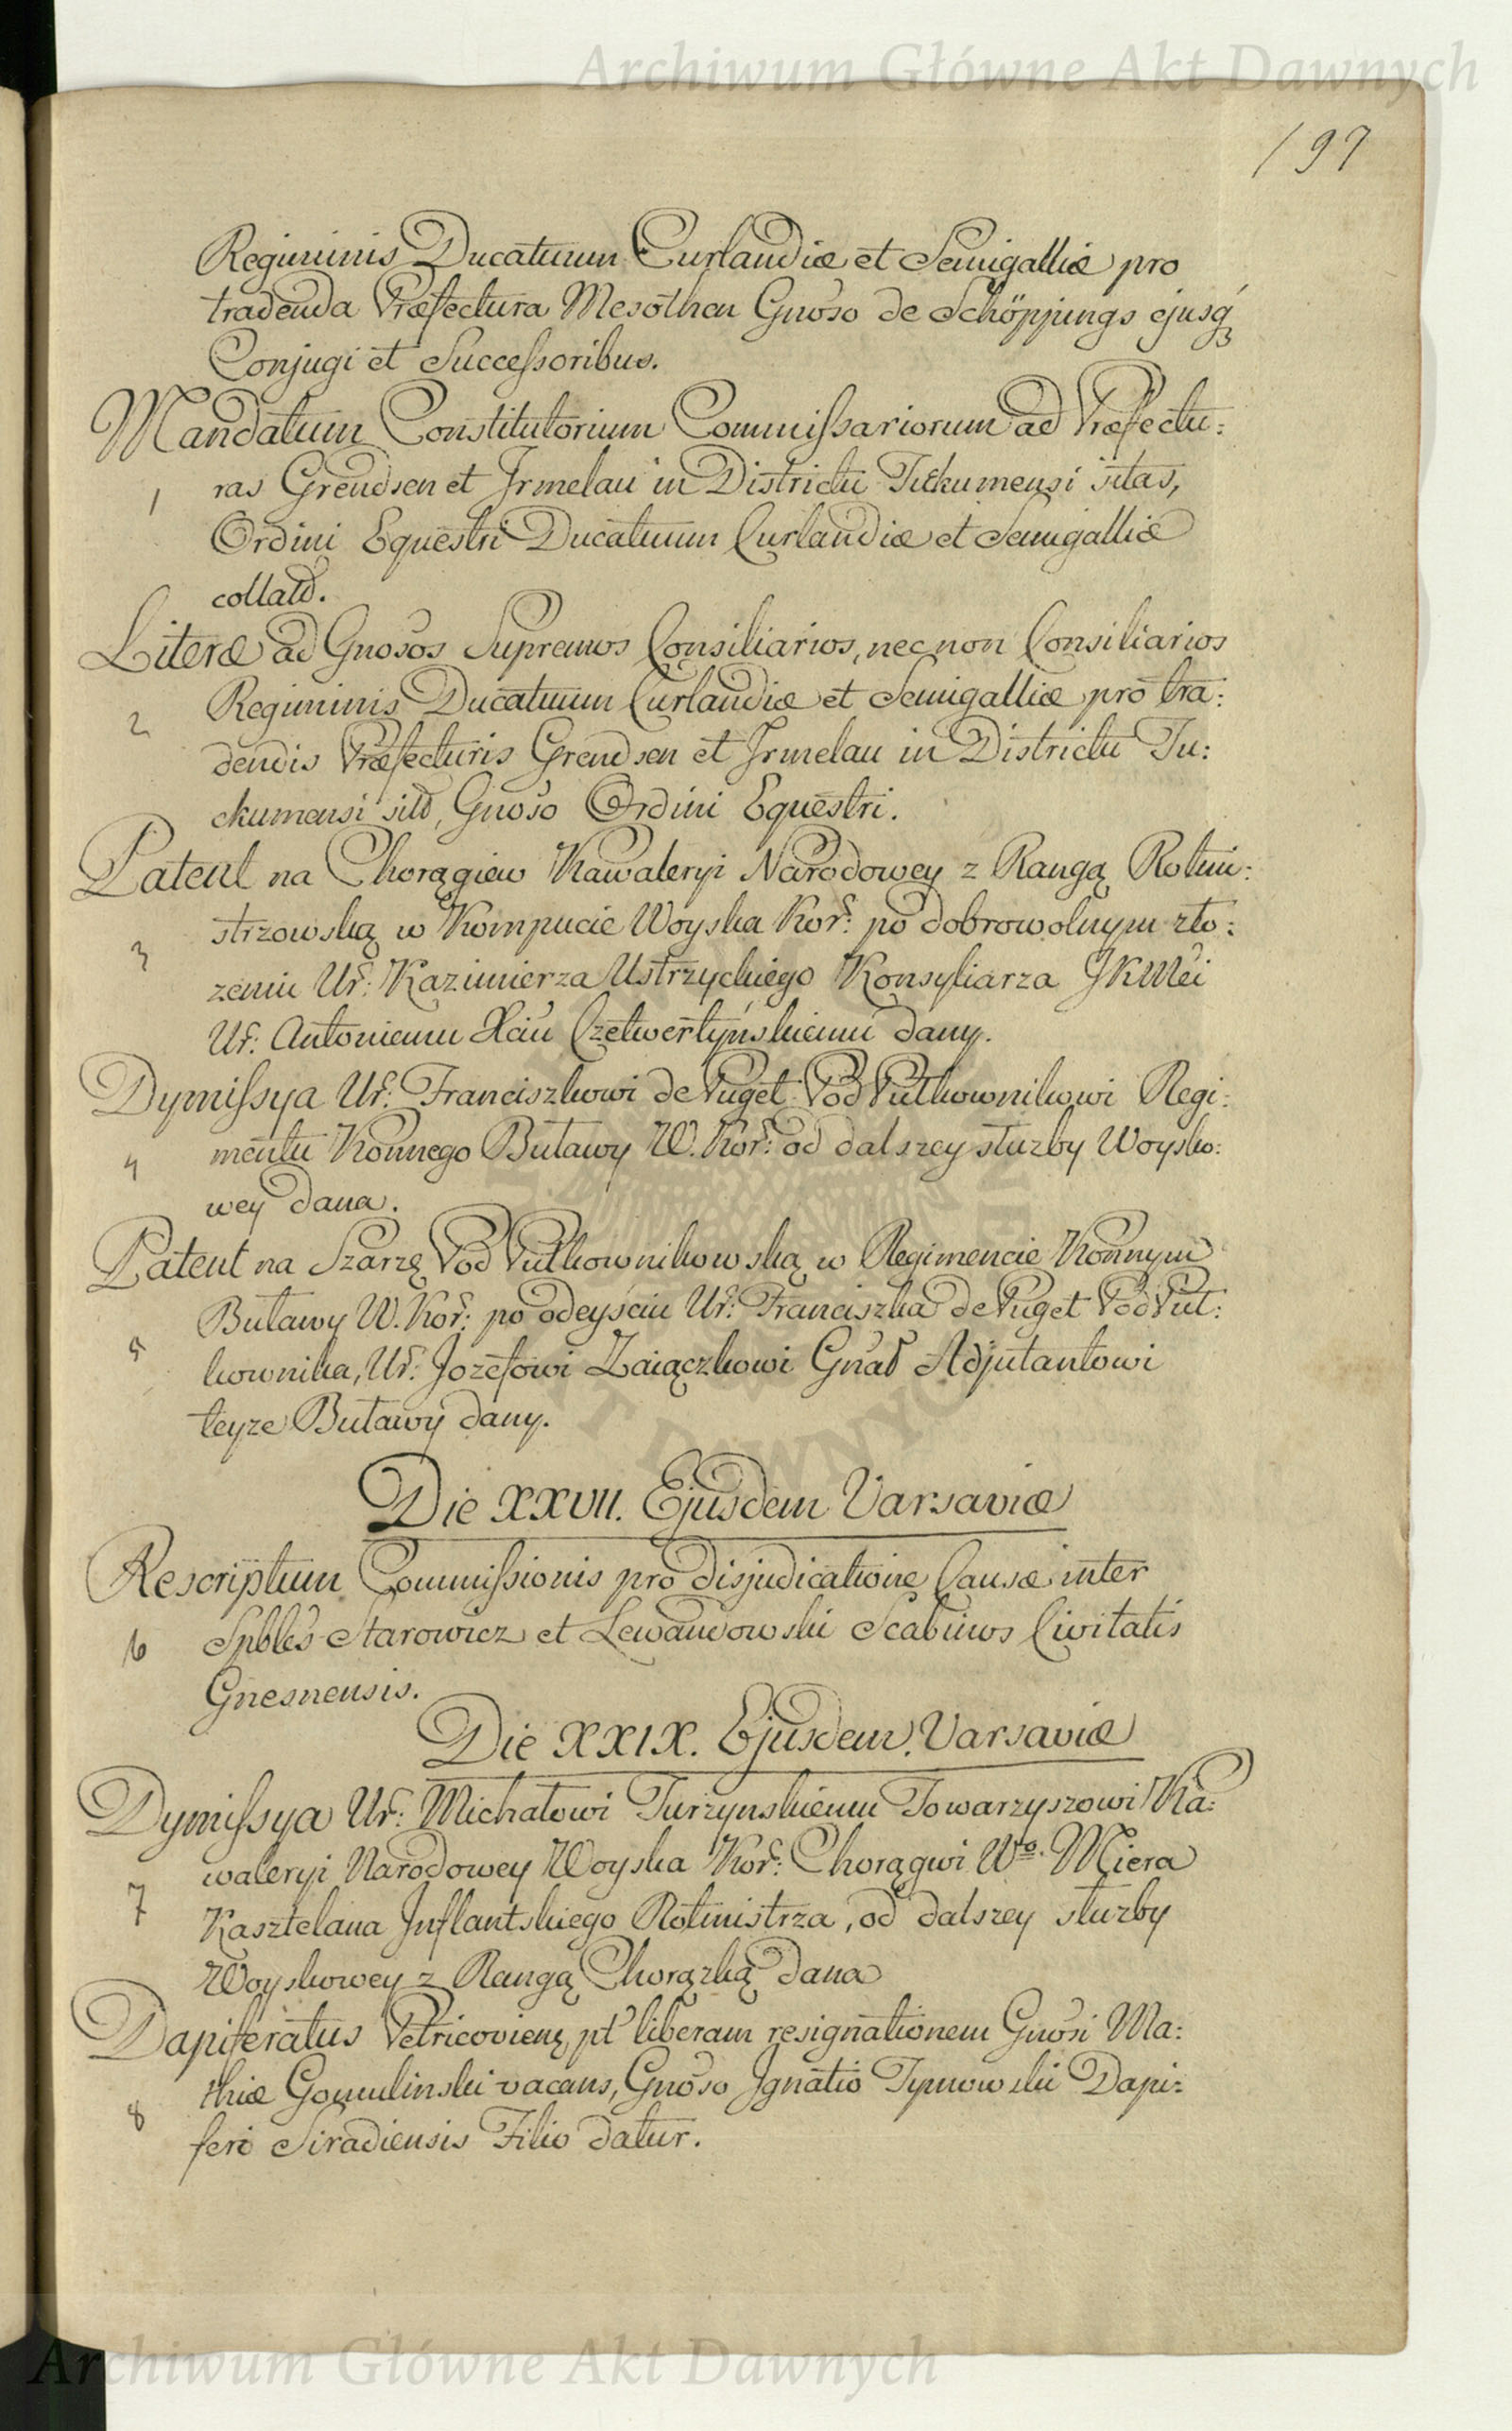 Archiwum Główne Akt Dawnych
197
Regiminis Ducatuum Curlandiæ et Semigalliæ pro
tradenda Præfectura Mesothen Gnoso de Schöppings ejusq́
Conjugi et Successoribus.
Mandatum Constitutorium Commissariorum ad Præfectu:
1 ras Grendsen et Irmelau in Districtu Tuckumensi sitas,
Ordini Equestri Ducatuum Curlandiæ et Semigalliæ
collatd.
Literæ ad Gnosos Supremos Consiliarios, nec non Consiliarios
2 Regiminis Ducatuum Curlandiæ et Semigalliæ pro tra:
dendis Præfecturis Grendsen et Irmelau in Districtu Tu:
ckumensi sitd, Gnoso Ordini Equestri.
Patent na Chorągiew Kawaleryi Narodowey z Rangą Rotmi:
3 strzowską w Kompucie Woyska Kor: po dobrowolnym zło:
zeniu Ur: Kazimierza Ustrzyckiego Konsyliarza JKMci
Ur: Antoniemu Xciu Czetwertyńskiemu dany.
Dymissya Ur: Franciszkowi de Puget Pod Pułkownikowi Regi:
4 mentu Konnego Buławy W. Kor: od dalszey służby Woysko:
wey dana.
Patent na Szarzę Pod Pułkownikowską w Regimencie Konnym
5 Buławy W. Kor: po odeyściu Ur: Franciszka de Puget Pod Puł:
kownika, Ur: Jozefowi Zaiączkowi Gnał Adjutantowi
teyze Buławy dany.
Die XXVII. Ejusdem Varsaviæ
Rescriptum Commissionis pro disjudicatione Causæ inter
6 Spbles Starowicz et Lewandowski Scabinos Civitatis
Gnesnensis.
Die XXIX. Ejusdem Varsaviæ
Dymissya Ur: Michałowi Turzynskiemu Towarzyszowi Ka:
7 waleryi Narodowey Woyska Kor: Chorągwi Wo. Miera
Kasztelana Inflantskiego Rotmistrza, od dalszey służby
Woyskowey z Rangą Chorązką dana
Dapiferatus Petricovien pt liberam resignationem Gnosi Ma:
8 thiæ Gomulinski vacans, Gnoso Ignatio Tymowski Dapi:
feri Siradiensis Filio datur.
Archiwum Główne Akt Dawnych